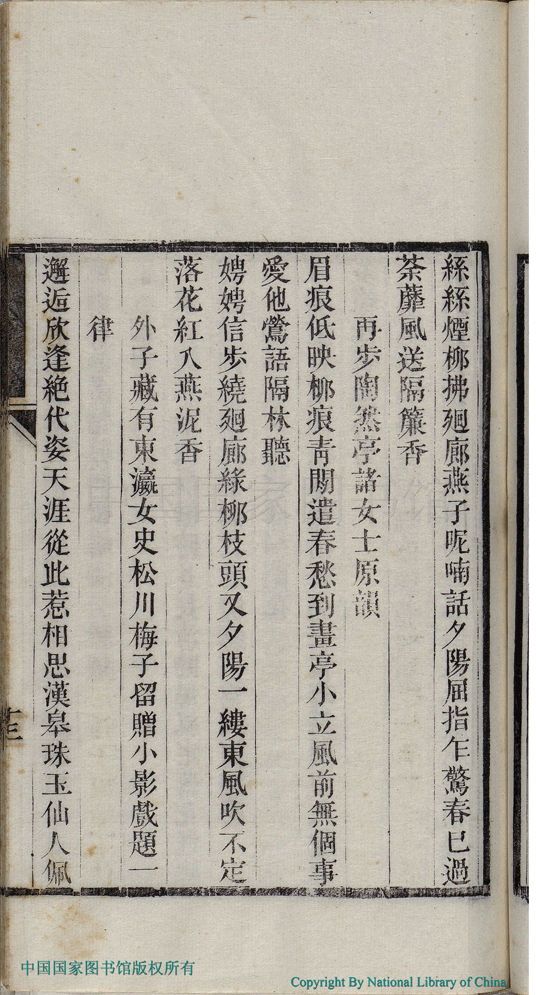 絲絲煙柳拂廻廊燕子呢喃話夕陽屈指乍驚春巳過
荼蘼風送隔簾香
再步陶然亭諸女士原韻
眉痕低映柳痕靑閒遣春愁到畫亭小立風前無個事
愛他鶯語隔林聽
娉娉信步繞廻廊綠柳枝頭又夕陽一縷東風吹不定
落花紅入燕泥香
外子藏有東瀛女史松川梅子留贈小影戲題一
律
邂逅欣逢絶代姿天涯從此惹相思漢皋珠玉仙人佩
十三
中国国家图书馆版权所有
Copyright By National Library of China